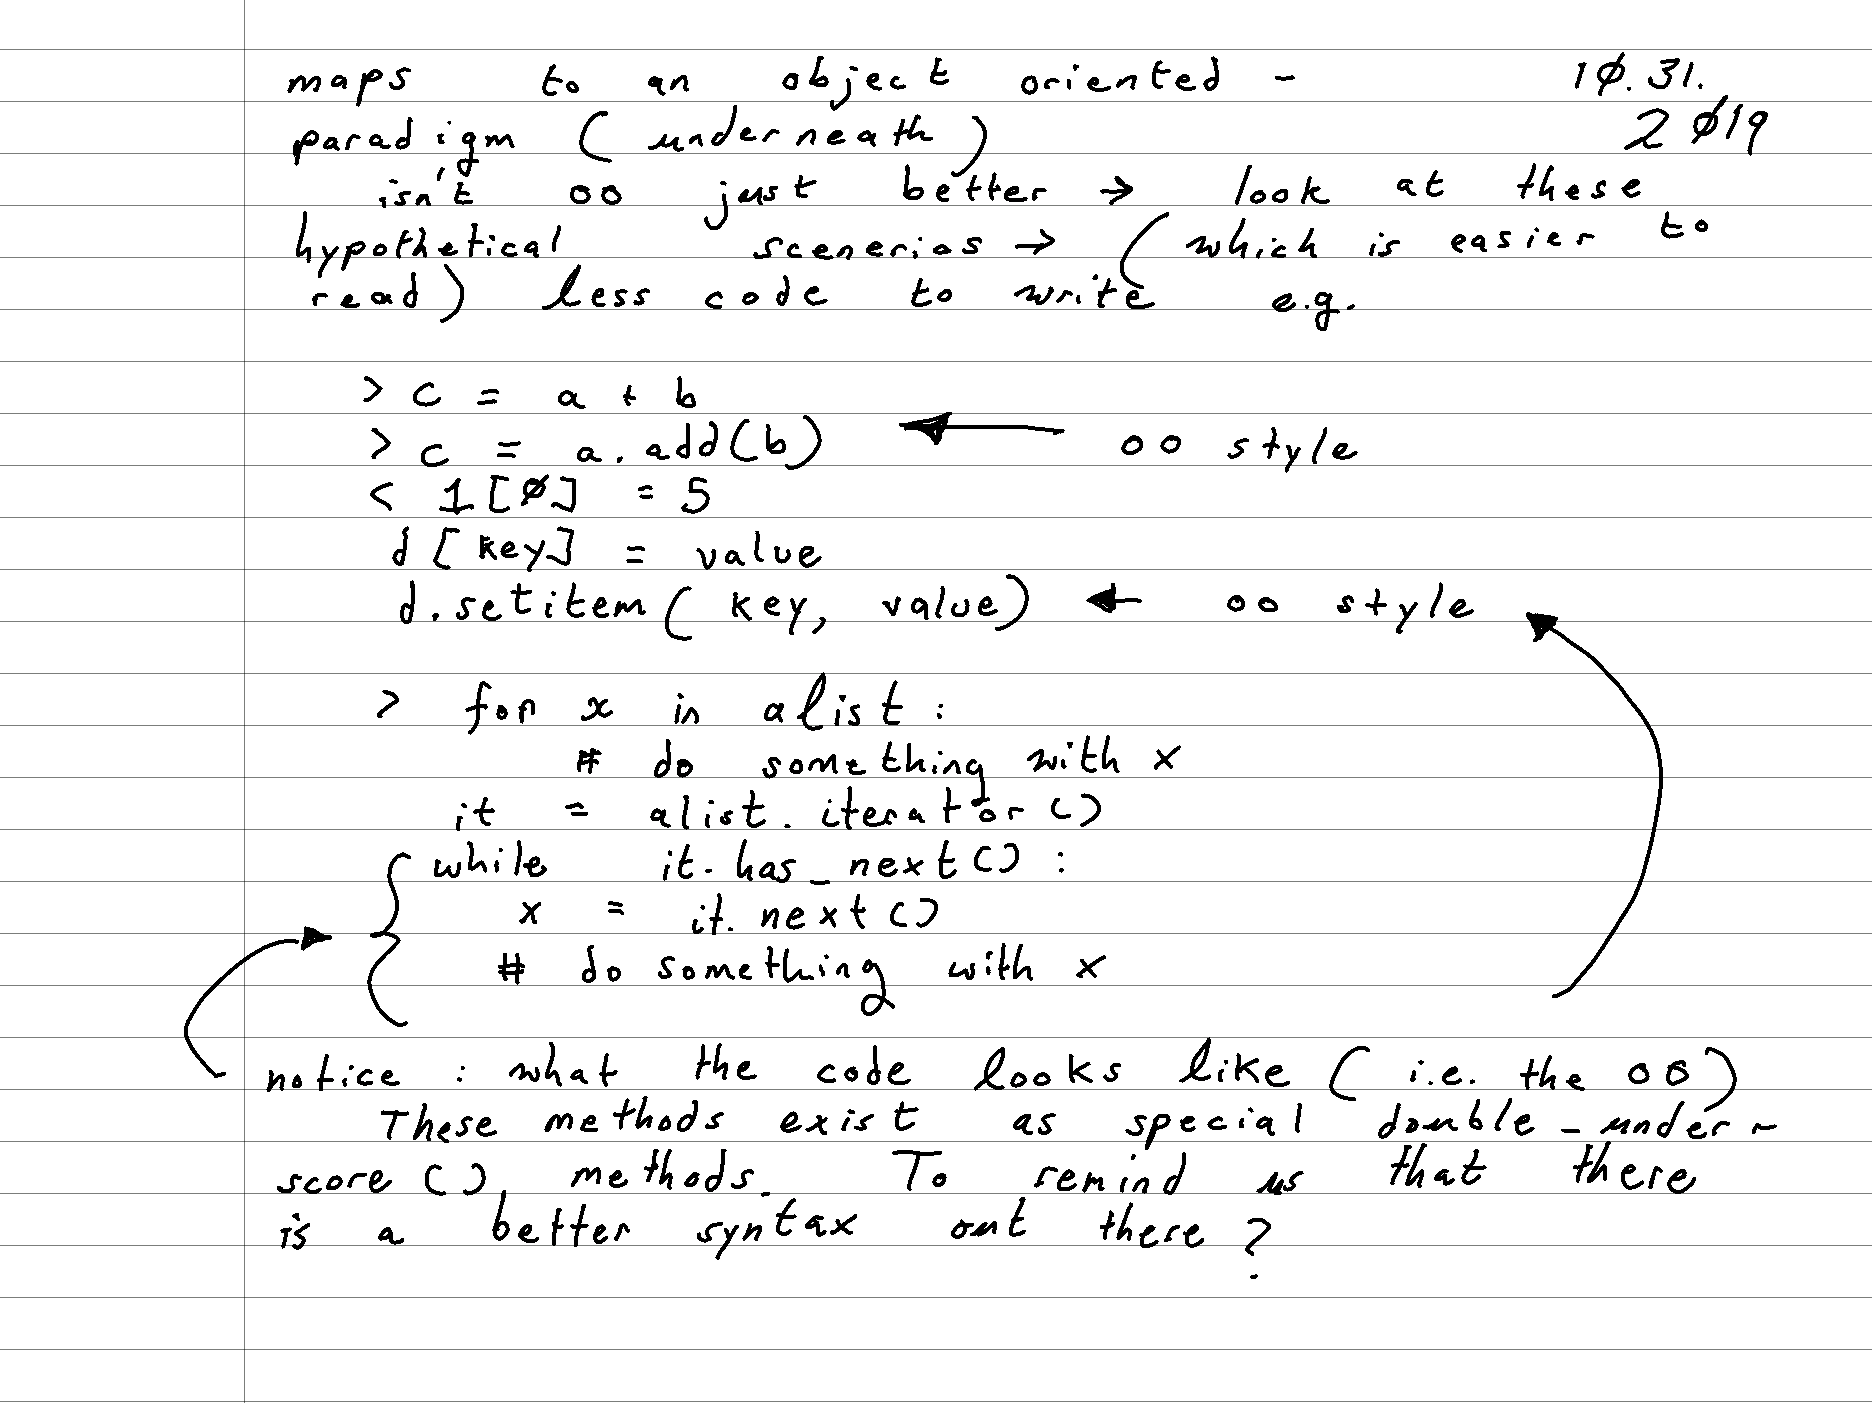 maps to an object oriented - 1Ø.31.
paradigm (underneath) 2Ø19
isn't oo just better → look at these
hypothetical scenerios → (which is easier to
read) less code to write e.g.
> c = a + b
> c = a.add(b) ← oo style
< 1[Ø] = 5
d[key] = value
d.setitem(key, value) ← oo style
> for x in alist:
# do something with x
it = alist.iterator()
while it.has_next():
x = it.next()
# do something with x
notice: what the code looks like (i.e. the oo)
These methods exist as special double-under-
score(), methods. To remind us that there
is a better syntax out there?